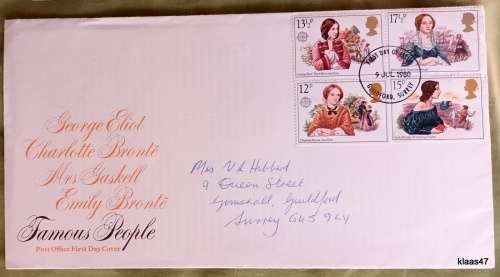 13½p
17½p
FIRST DAY OF ISSUE
9 JUL 1980
GUILDFORD, SURREY
12p
15p
George Eliot
Charlotte Brontë
Mrs Gaskell
Emily Brontë
Famous People
Post Office First Day Cover
Mrs V A Hibberd
9 Queen Street
Gomshall, Guildford
Surrey GU5 9LY
klaas47